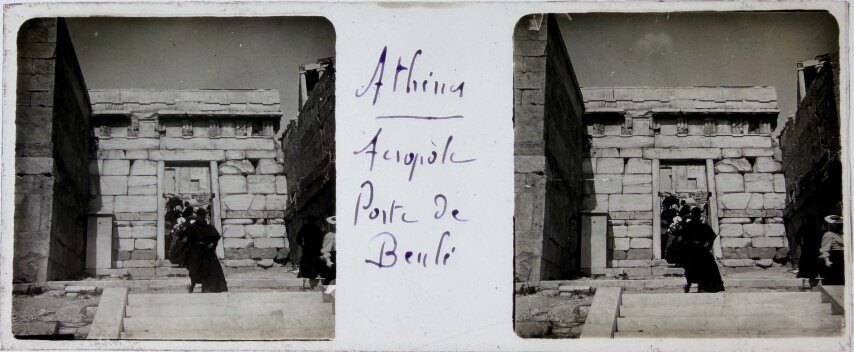 Athènes
Acropôle
Porte de
Beulé